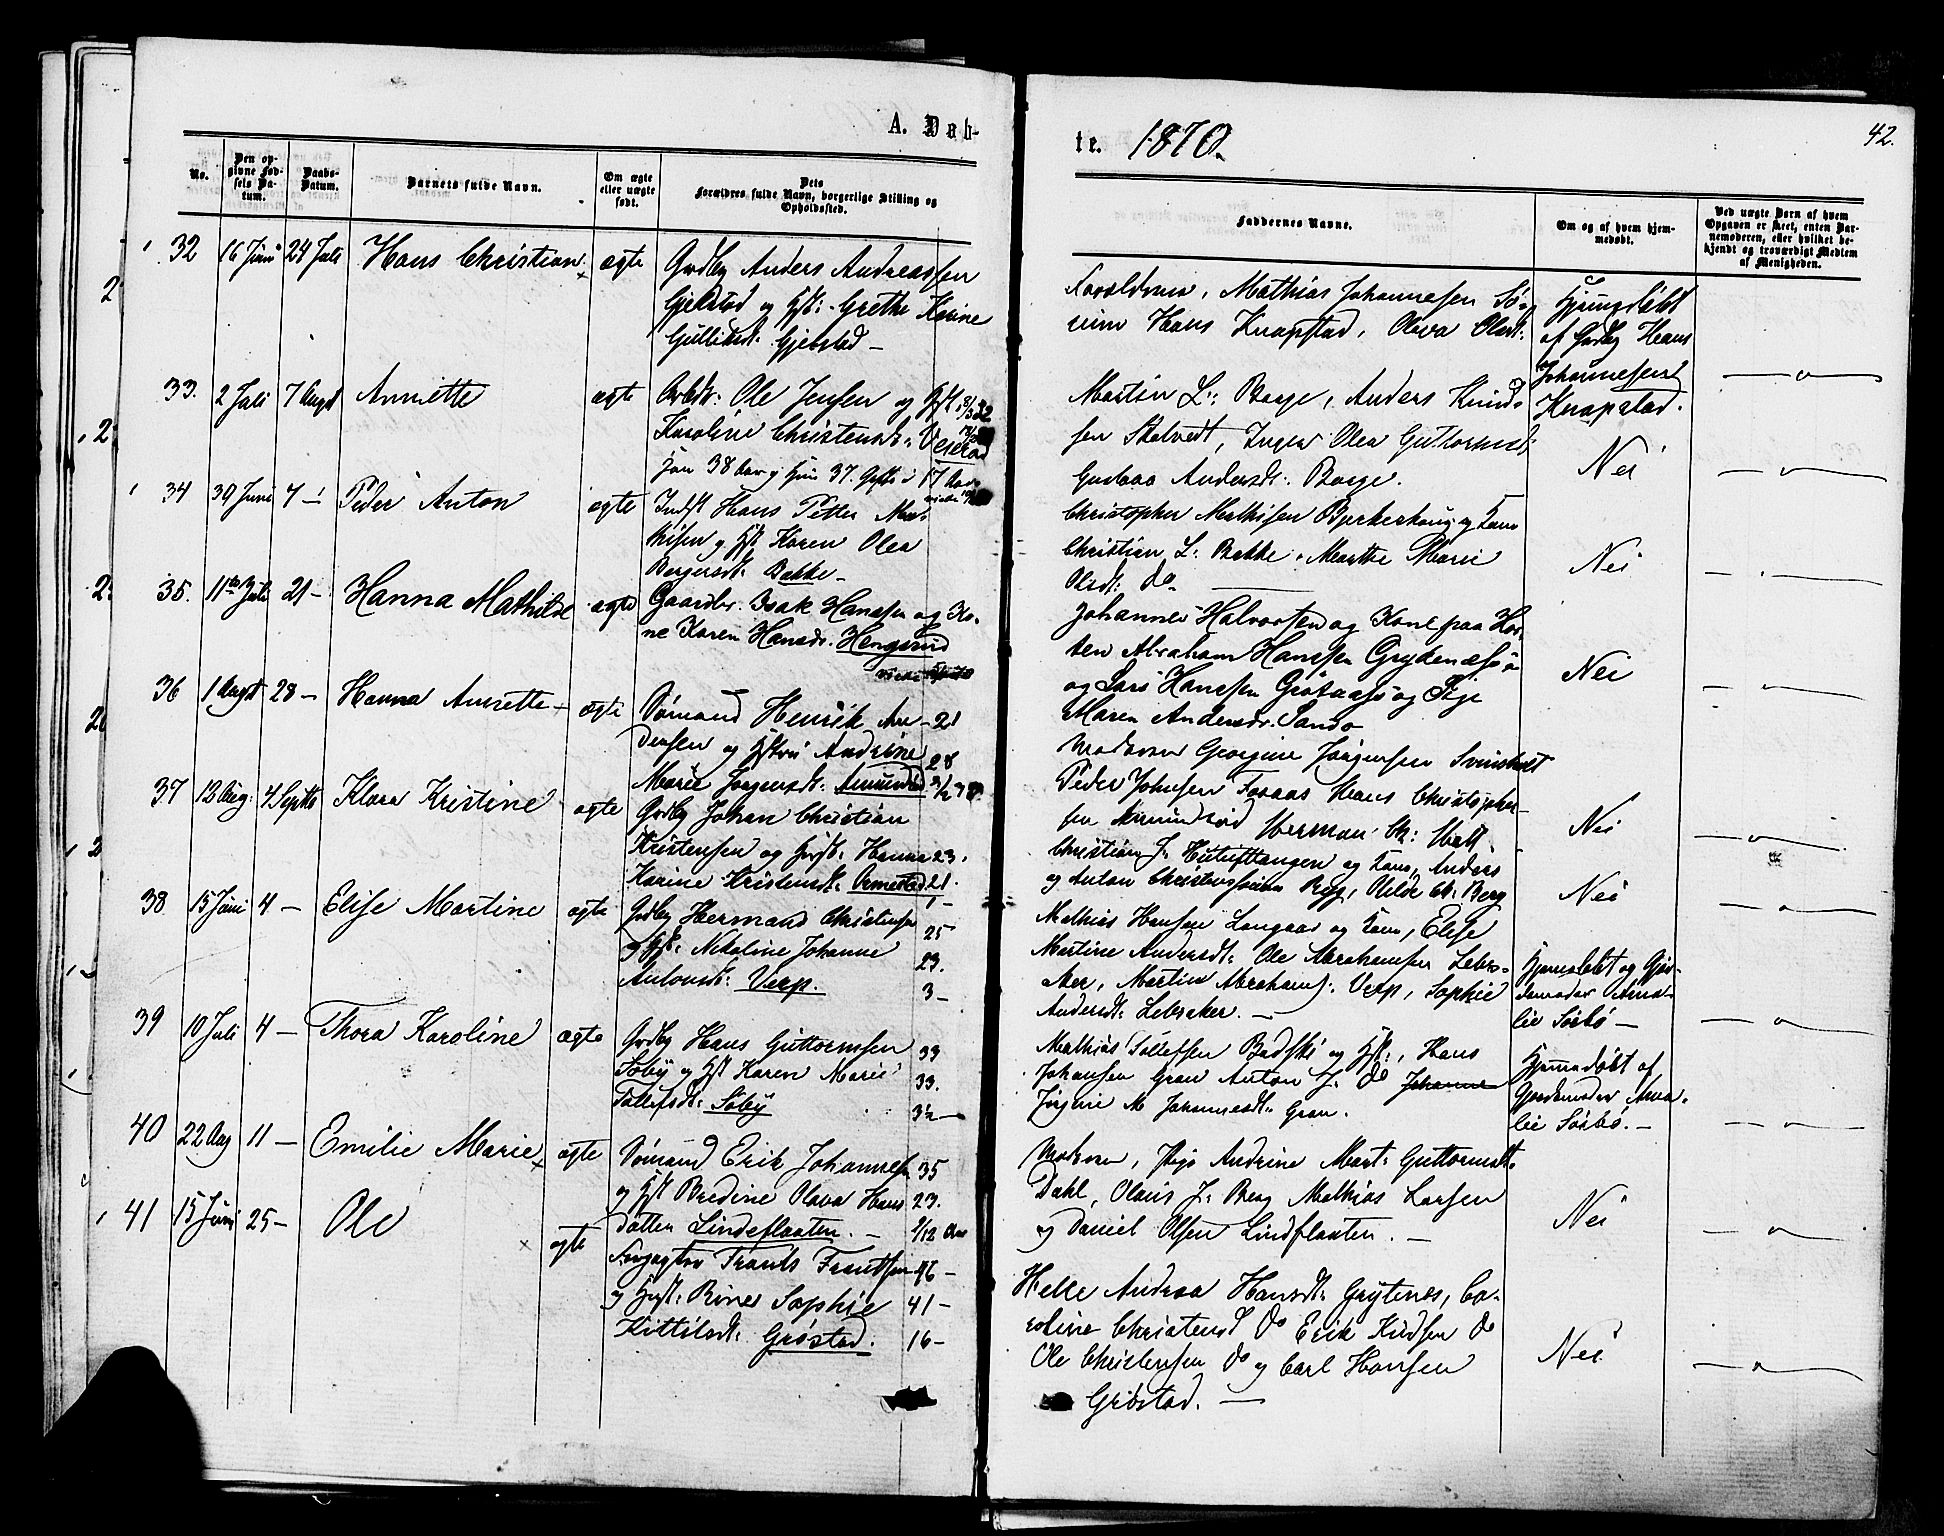 A. Døb-
te. 1870.
42.
No.
Den op-
givne Fød-
sels Da-
tum.
Daabs-
Datum.
Barnets fulde Navn.
Om ægte
eller uægte
født.
Dets
Forældres fulde Navn, borgerlige Stilling og
Opholdssted.
Faddernes Navne.
Om og af hvem hjem-
medøbt.
Ved uægte Barn af hvem
Opgaven er skeet, enten Bar-
nemoderen, eller hvilket be-
kjendt og troværdigt Medlem
af Menigheden.
32 16 Juni 24 Juli Hans Christian ægte
Grdbg Anders Andreassen
Gjelstad og Hst: Grethe Karine
Gulliksdt: Gjelstad –
Forældrene, Mathias Johannesen Sø-
rum Hans Knapstad, Olava Olsdt:
Hjemmedøbt
af Grdbg Hans
Johannesen
Knapstad.
33. 2 Juli 7 Augst Annette ægte
Arbdr: Ole Jensen og Hst
Karoline Christensdt:
Han 38 Aar og Hun 37. Gifte i 17 Aar
Martin L: Borge, Anders Knud-
sen Stalvedt, Inger Olea Guttormsdt:
Gustava Andersdt: Borge.
Nei
34 39 Juni 7 – Peder Anton ægte
Indst Hans Petter Ma-
thisen og Hst Karen Olea
Borgersdt: Bakke –
Christopher Mathisen Byrkerhaug og Kone
Christian L: Bakke, Marthe Marie
Olsdt: do
Nei
35. 11te Juli 21 – Hanna Mathilde ægte
Gaardbr. Isak Hansen og Ko-
ne Karen Hansdr. Hengsrud
Johannes Halvorsen og Kone paa Hor-
ten Abraham Hansen Grydenæsø
og Lars Hansen Grøtaas og Pige
Maren Andersdr. Sando
Nei
36 1 Augst 28 – Hanna Annette – ægte
Sømand Henrik An- 21
densen og Hstru Andrine 28
Marie Jørgensdt: Amundrød
Moderen Georgine Jørgensen
Peder Johnsen Foraas Hans Christopher-
sen Amundrød Herman Ch:
Nei
37 13 Aug: 4 Septb Klara Kristine ægte
Grdbg Johan Christian
Kristensen og Hst: Hanna 23.
Karine Kristensdt: Ormestad 21.
Christian J. Hutuftangen og Kone, Anders
og Anton Christensen Rør, Olilde Ch: Berg
Nei
38 15 Juni 4 – Elise Martine ægte
Grdbg Hermand Christensen 25
og Hst: Nikoline Johanne 23.
Antonsdt: Verp. 3 –
Mathias Hansen Langaar og Kone, Elise
Martine Andersdt: Ole Abrahamsen Lebes-
aker, Martin Abrahams: Verp, Sophie
Andersdt: Lebsaker. –
Hjemmedøbt og Gjor-
demoder Ama-
lie Sørbø –
39 10 Juli 4 – Thora Karoline ægte
Grdbg Hans Guttormsen 33
Søby og Hst Karen Marie 33.
Tollefsdt: Søby 3½ –
Mathias Tollefsen Badski og Hst:, Hans
Johansen Gran Anton J. do Johanne
Jørgine M Johannesdt: Gran.
Hjemmedøbt af
Gjordemoder Ama-
lie Sørbø. –
40 22 Aug 11 – Emilie Marie ægte
Sømand Erik Johannesen 35
og Hst Bredine Olava Hans 23.
datter Lindeflaaten. –
Moderen, Pige Andrine Mart: Guttormsdt:
Dahl, Olaus J: Berg Mathias Larsen
og Daniel Olsen Lindflaaten. –
Nei
41 15 Juni 25 – Ole ægte
Frants Frantsen 46 –
og Hst: Rine Sophie 41 –
Kittilsdt: Grøstad. 16 –
Helle Andrea Hansdt: Grytenes, Ca-
roline Christensd do Erik Knudsen do
Ole Christensen do og Carl Hansen
Grøstad. –
Nei